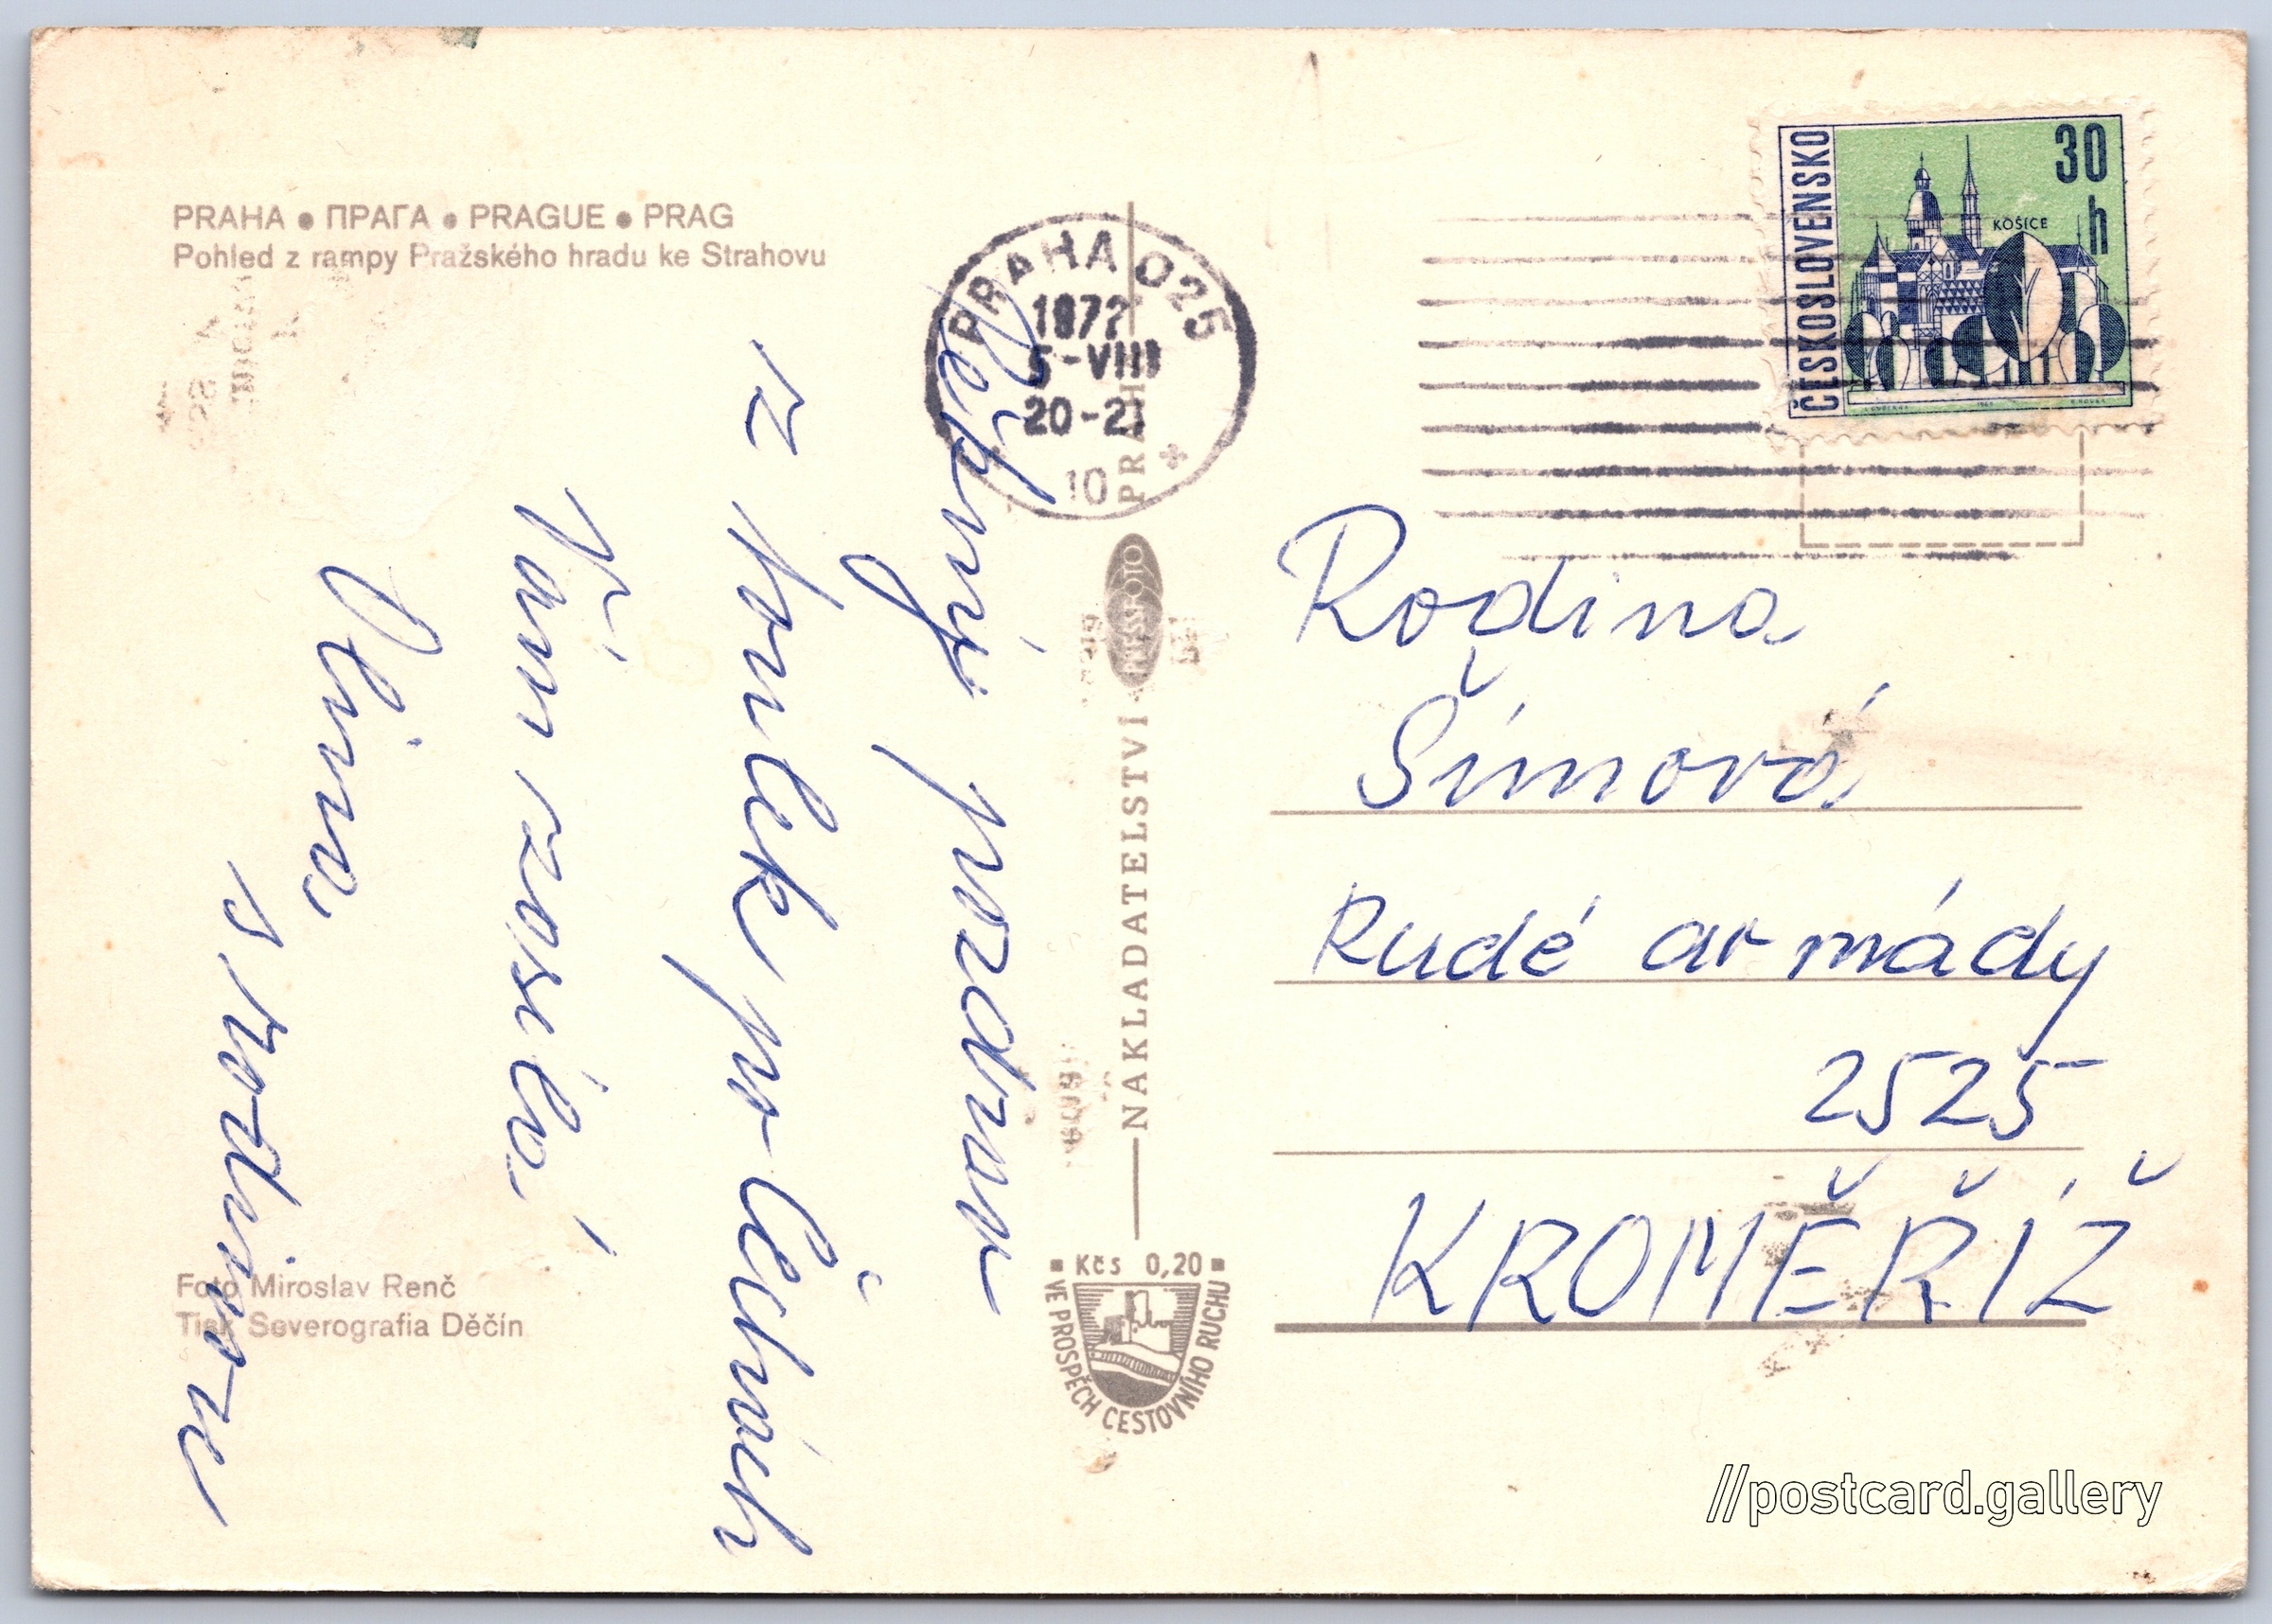 PRAHA ● ПРАГА ● PRAGUE ● PRAG
Pohled z rampy Pražského hradu ke Strahovu
pozdrav
z toulek po Čechách
Vám zasílá
s rodinou
Foto Miroslav Renč
Tisk Severografia Děčín
PRAHA 025
1972
5-VIII
20-21
10
NAKLADATELSTVÍ PRESSFOTO PRAHA
Kčs 0,20
VE PROSPĚCH CESTOVNÍHO RUCHU
ČESKOSLOVENSKO
30
h
KOŠICE
Rodina
Šímová
Rudé armády
2525
KROMĚŘÍŽ
//postcard.gallery